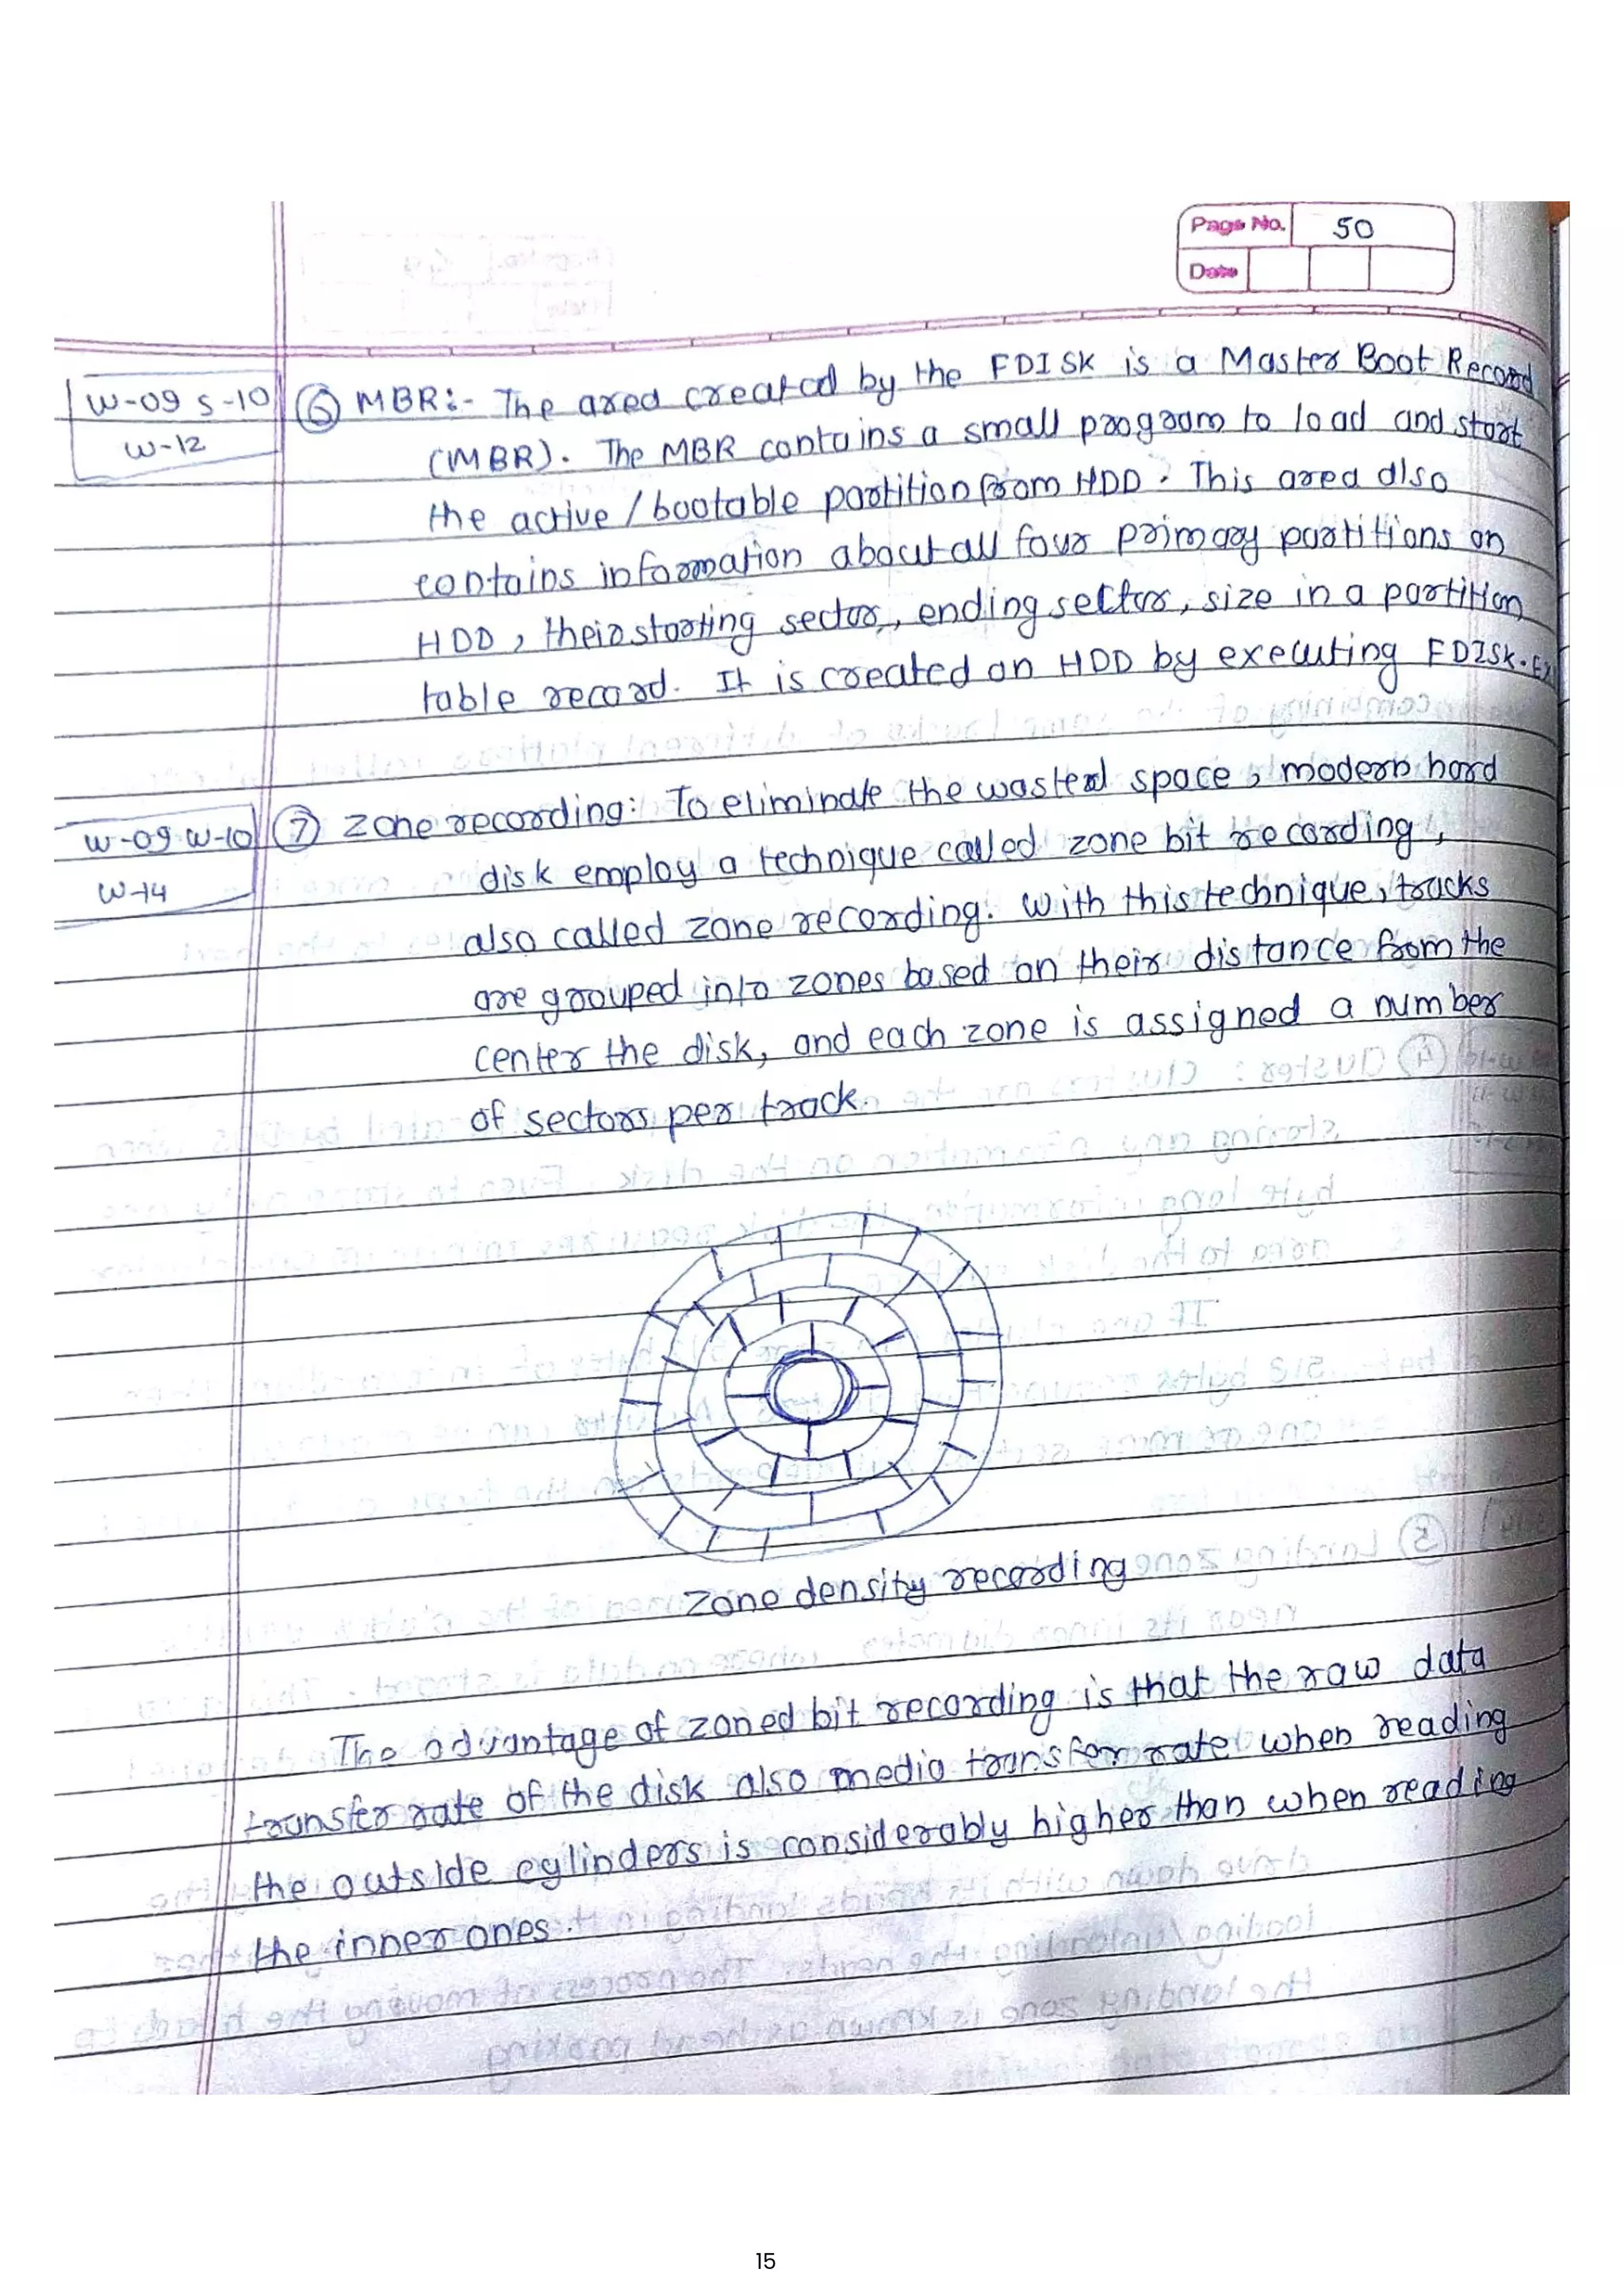 Page No. 50
Date
W-09 S-10
W-12
⑥ MBR:- The area created by the FDISK is a Master Boot Record
(MBR). The MBR contains a small program to load and start
the active / bootable partition from HDD. This area also
contains information about all four primary partitions on
HDD, their starting sector, ending sector, size in a partition
table record. It is created on HDD by executing FDISK.EX
W-09 W-10
W-14
⑦ Zone recording: To eliminate the wasted space, modern hard
disk employ a technique called zone bit recording,
also called zone recording. With this technique, tracks
are grouped into zones based on their distance from the
center the disk, and each zone is assigned a number
of sectors per track.
Zone density recording
The advantage of zoned bit recording is that the raw data
transfer rate of the disk also media transfer rate when reading
the outside cylinders is considerably higher than when reading
the inner ones.
15